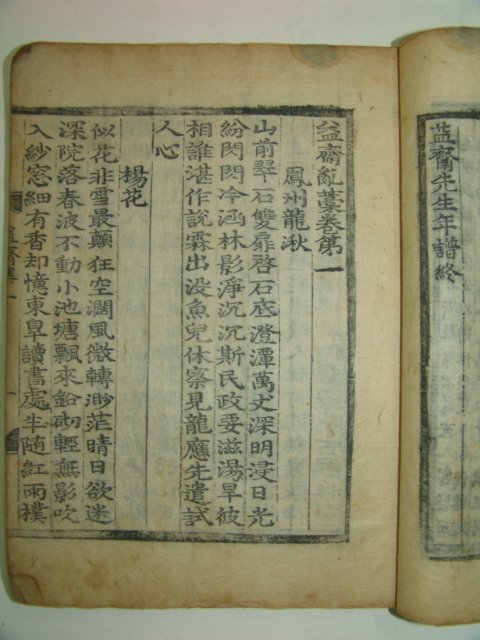 益齋先生年譜終
益齋亂藁卷第一
鳳州龍湫
山前翠石雙扉啓石底澄潭萬丈深明浸日光
紛閃閃冷涵林影淨沉沉斯民政要滋湯旱彼
相誰湛作說霖出没魚兒休察見龍應先遣試
人心
楊花
似花非雪最顛狂空濶風微轉渺茫晴日欲迷
深院落春波不動小池塘飄來鉛砌輕無影吹
入紗窓細有香却憶東皐讀書處半隨紅雨撲